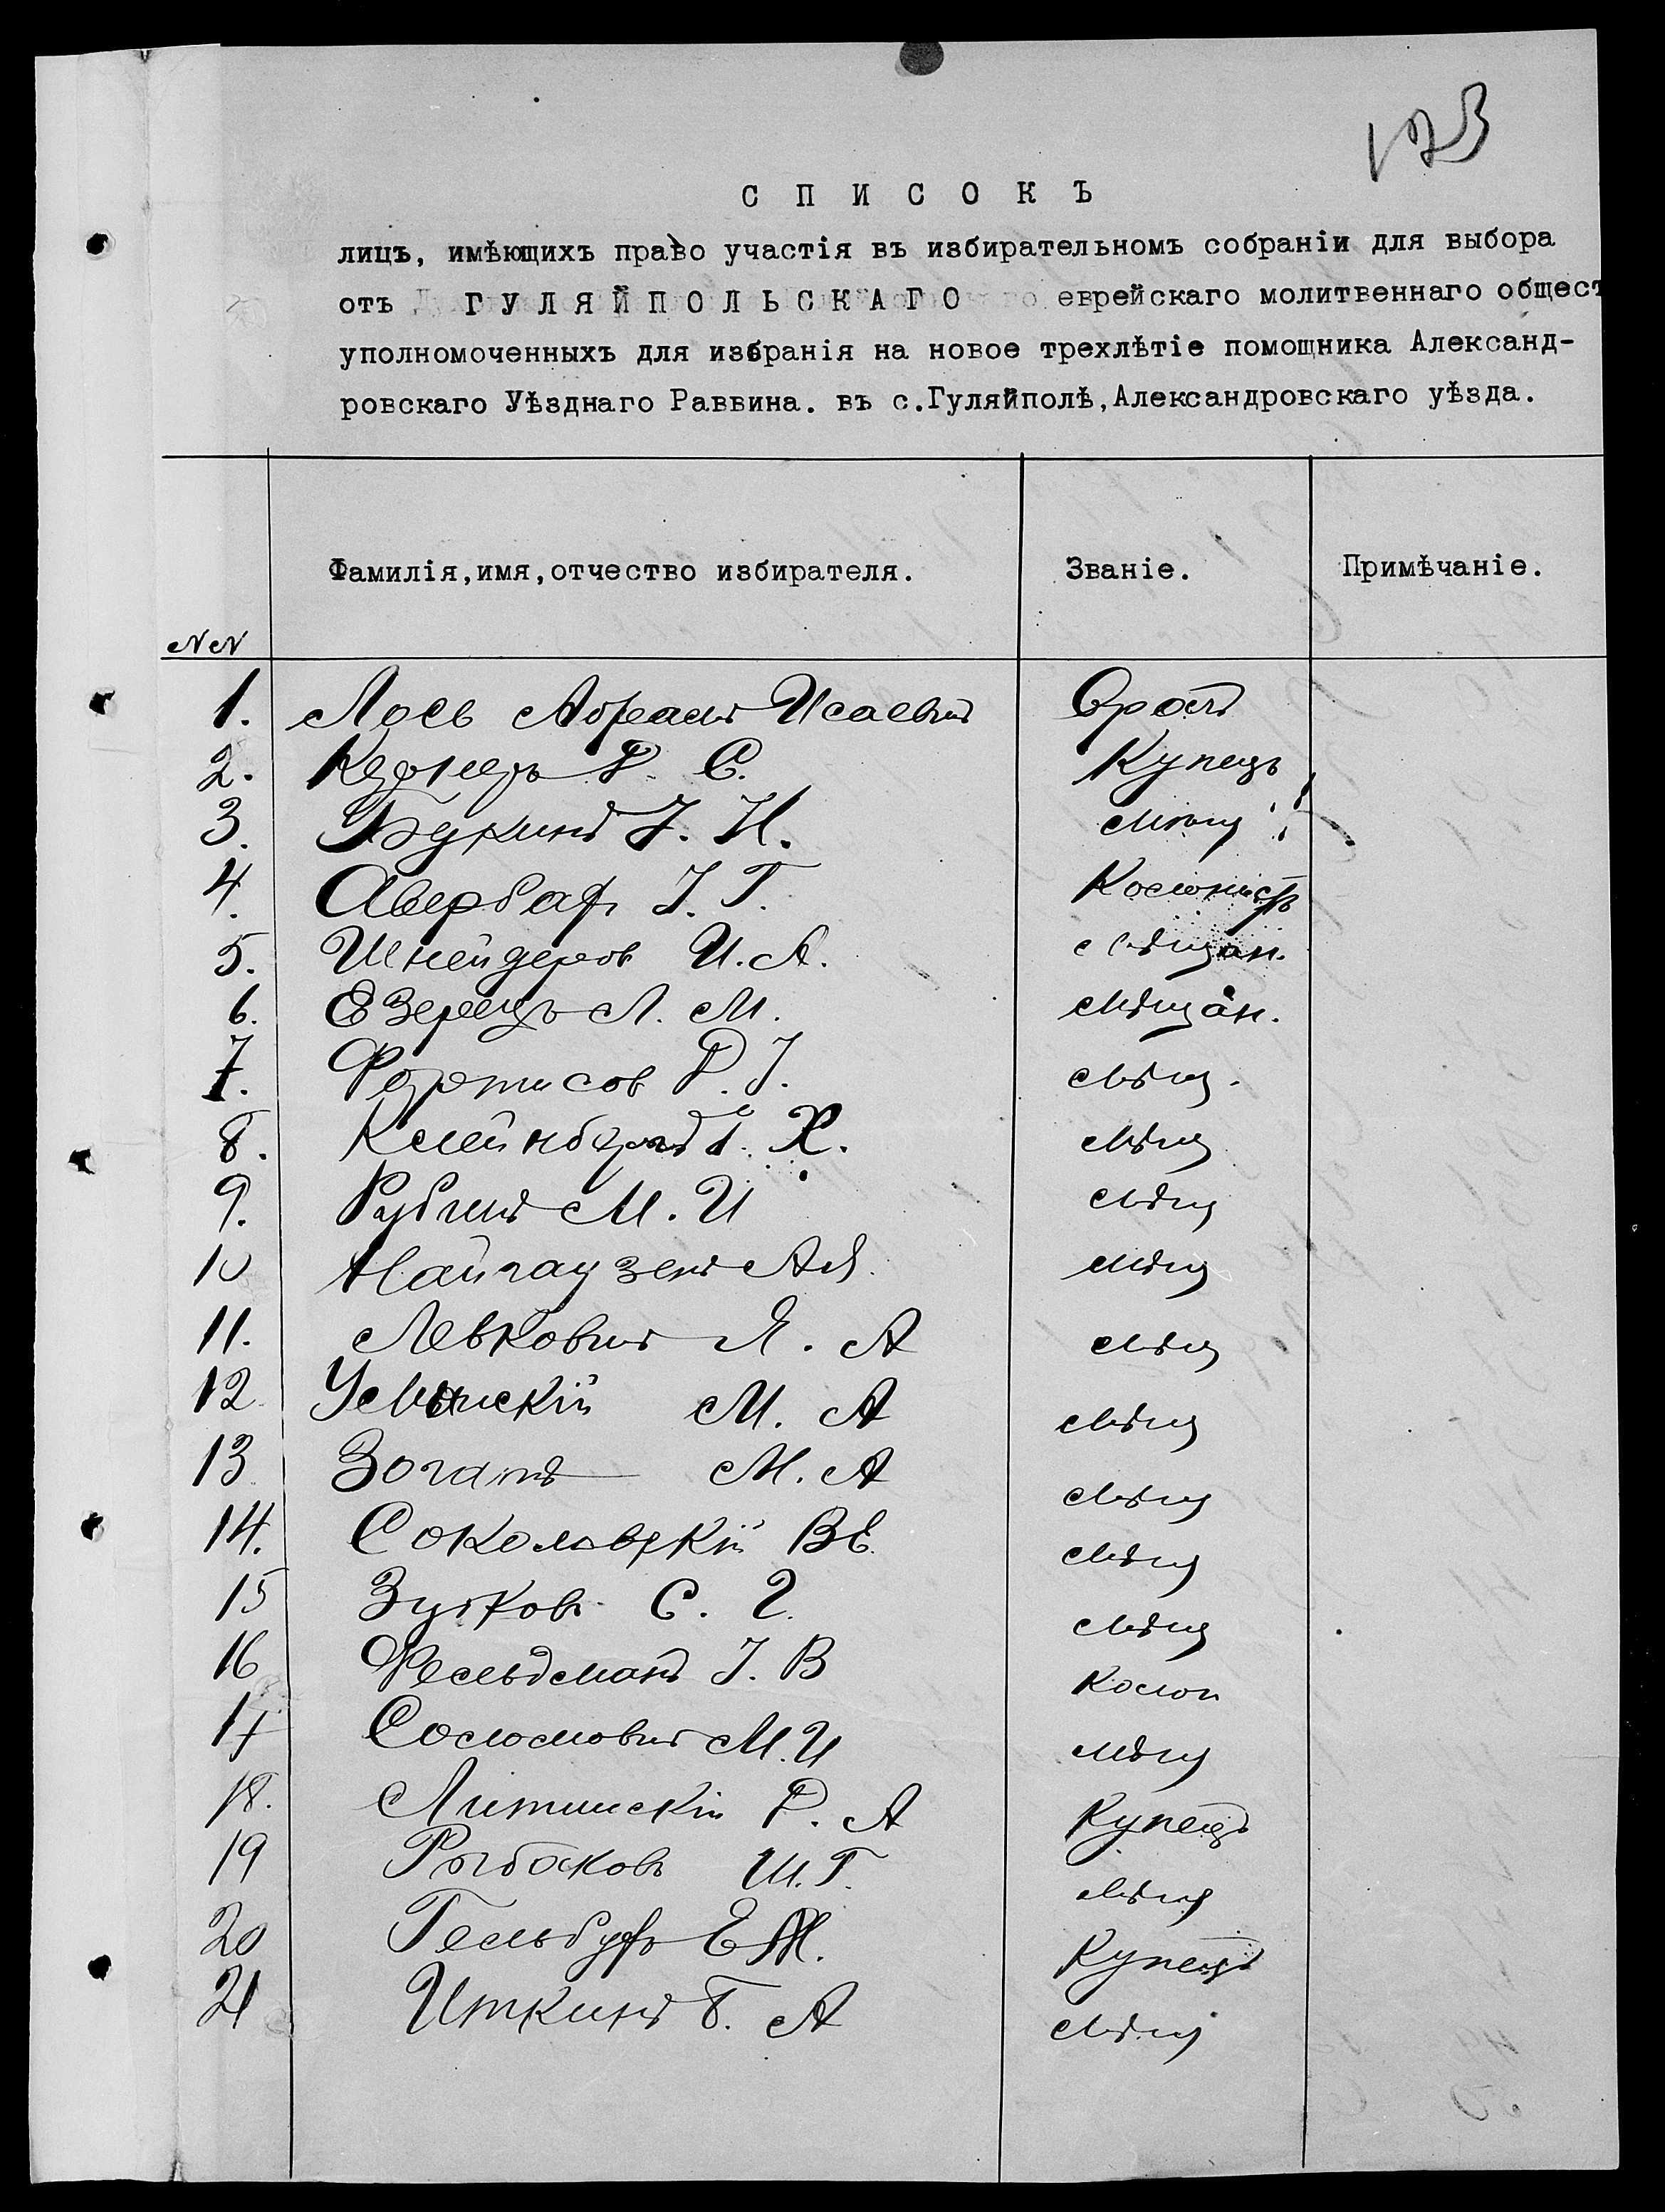 123
С П И С О К Ъ
лицъ, имѣющихъ право участія въ избирательномъ собраніи для выбора
отъ Г У Л Я Й П О Л Ь С К А Г О еврейскаго молитвеннаго общест
уполномоченныхъ для избранія на новое трехлѣтіе помощника Александ-
ровскаго Уѣзднаго Раввина. въ с.Гуляйполѣ,Александровскаго уѣзда.
Фамилія,имя,отчество избирателя. Званіе. Примѣчаніе.
NN
1. Лось Абрамъ Исаевичъ
2. Кернеръ С. Купецъ
3. Букинъ І. Н. Мѣщ
4. Авербахъ І. Г. Колонистъ
5. Шнейдеров И. А. Мѣщан.
6. Езерецъ Л. М. Мѣщан.
7. І. Мѣщ.
8. Клейнбергъ Х. Мѣщ
9. Рубинъ М. И Мѣщ
10 Найгаузенъ А Я. Мѣщ
11. Левковичъ Я. А Мѣщ
12 М. А Мѣщ
13 М. А Мѣщ
14. Соколовскій В Е. Мѣщ
15 С. Мѣщ
16 Фельдманъ І. В Колон
17 Соломовичъ М. И Мѣщ
18. Литинскій Р. А Купецъ
19 Рыбаковъ Ш. Г. Мѣщ
20 Гельбухъ Е Купецъ
21 Иткинъ Б. А Мѣщ